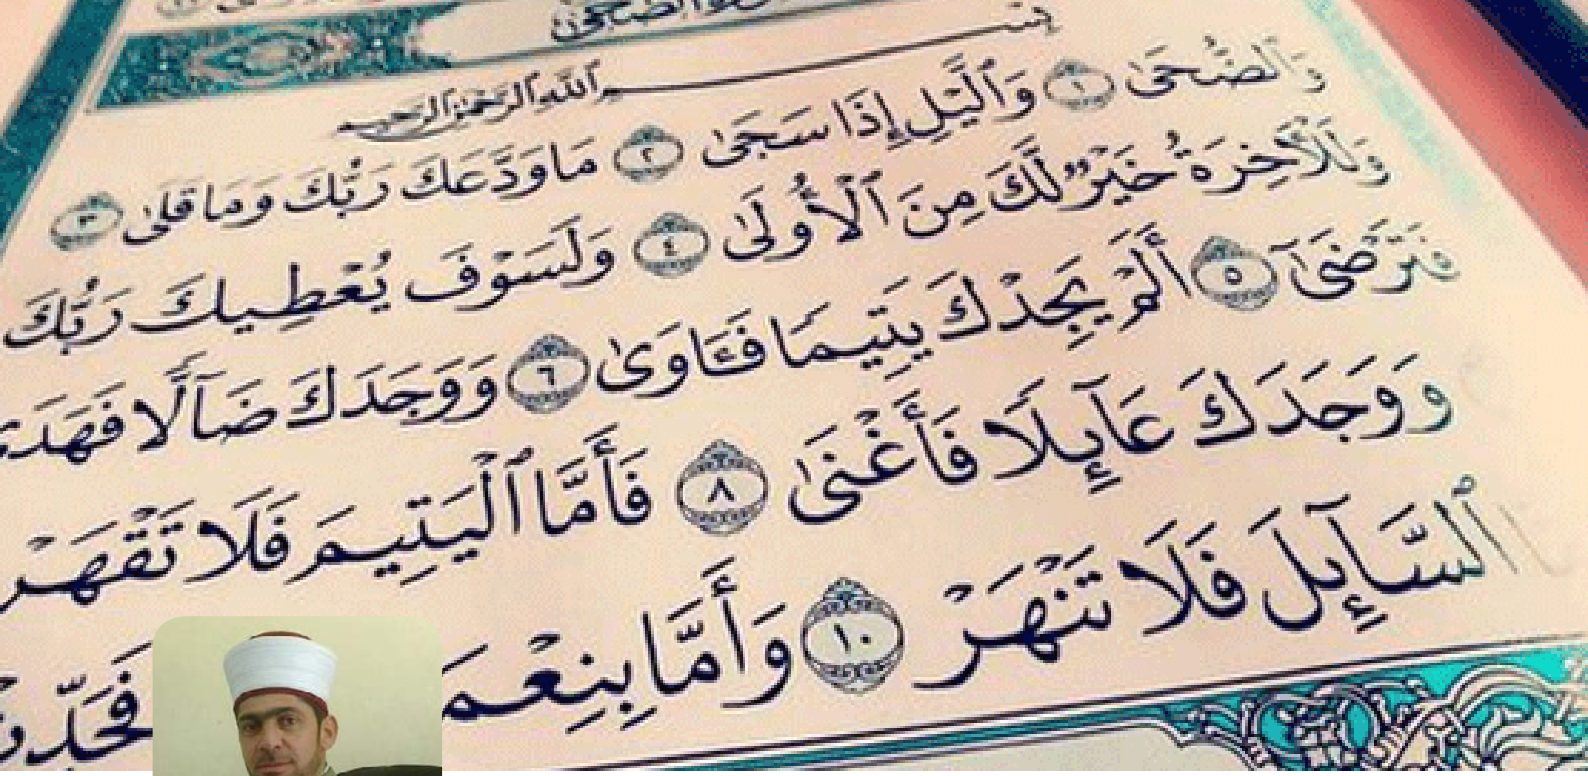 والضحى
بِسْمِ ٱللَّهِ ٱلرَّحْمَٰنِ ٱلرَّحِيمِ
وَٱلضُّحَىٰ ١ وَٱلَّيْلِ إِذَا سَجَىٰ ٢ مَا وَدَّعَكَ رَبُّكَ وَمَا قَلَىٰ ٣
وَلَلْأَخِرَةُ خَيْرٌ لَّكَ مِنَ ٱلْأُولَىٰ ٤ وَلَسَوْفَ يُعْطِيكَ رَبُّكَ
فَتَرْضَىٰٓ ٥ أَلَمْ يَجِدْكَ يَتِيمًا فَـَٔاوَىٰ ٦ وَوَجَدَكَ ضَآلًّا
وَوَجَدَكَ عَآئِلًا فَأَغْنَىٰ ٨ فَأَمَّا ٱلْيَتِيمَ فَلَا تَقْهَرْ
ٱلسَّآئِلَ فَلَا تَنْهَرْ ١٠ وَأَمَّا